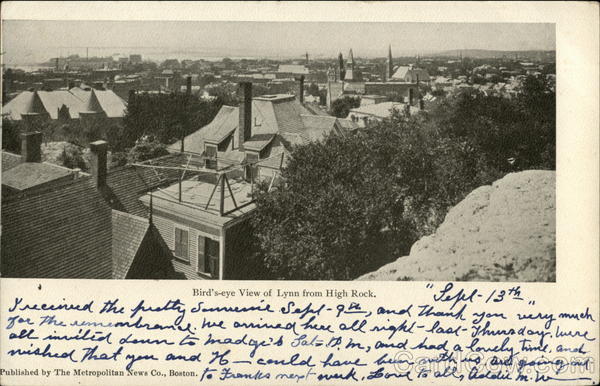 Bird's-eye View of Lynn from High Rock.
"Sept-13th"
I received the pretty Souvenir Sept-9th, and thank you very much
for the remembrance. We arrived here all right-last-Thursday. Were
all invited down to Madge's Sat. P.M., and had a lovely time, and
wished that you and H— could have been with us. Addie goes
Published by The Metropolitan News Co., Boston.
to Franks next week. Love to all Addie M. W
CardCow.com